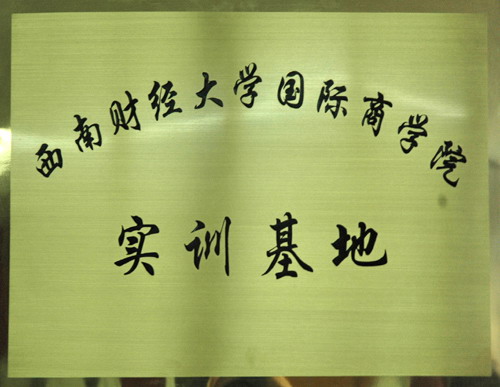 西南财经大学国际商学院
实训基地